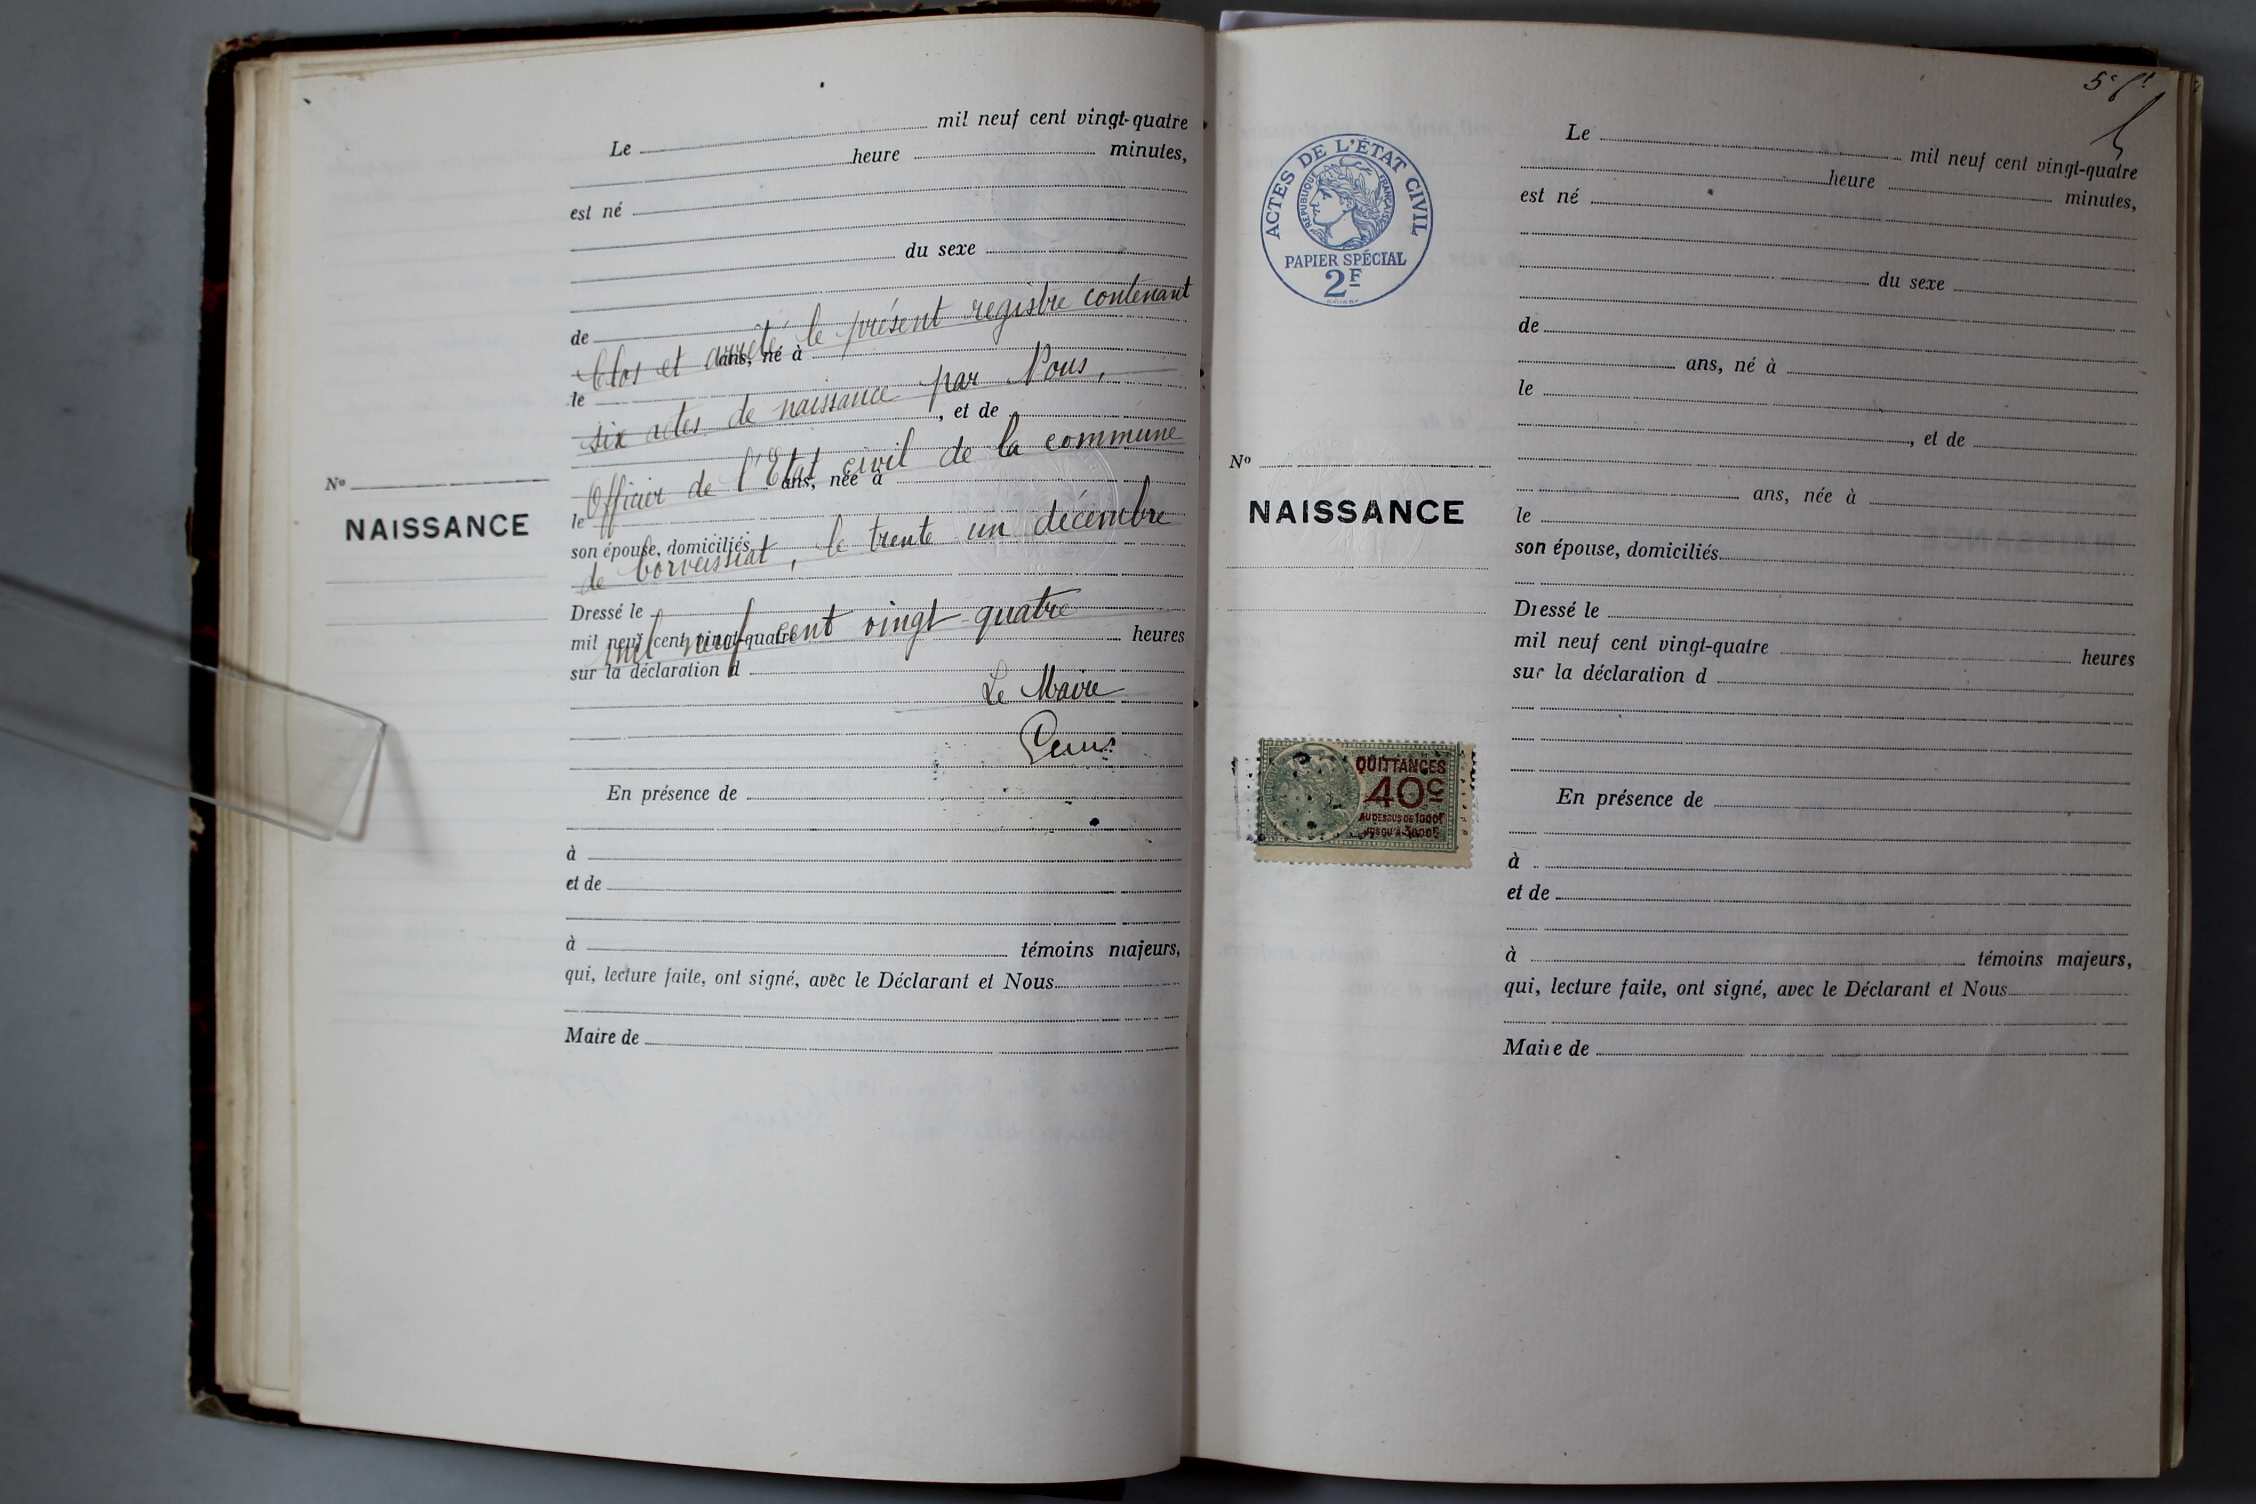 Le mil neuf cent vingt-quatre
heure minutes,
est né
du sexe
de
Clos et arrêté le présent registre contenant
ans, né à
le
six actes de naissance par Nous,
, et de
Officier de l'Etat civil de la commune
ans, née à
le
de Corveissiat, le trente un décembre
son épouse, domiciliés
Dressé le
mil neuf cent vingt quatre
mil neuf cent vingt-quatre heures
sur la déclaration d
Le Maire
En présence de
à
et de
à témoins majeurs,
qui, lecture faite, ont signé, avec le Déclarant et Nous
Maire de
No
NAISSANCE
5e
Le mil neuf cent vingt-quatre
heure minutes,
est né
du sexe
de
ans, né à
le
, et de
ans, née à
le
son épouse, domiciliés
Dressé le
mil neuf cent vingt-quatre heures
sur la déclaration d
En présence de
à
et de
à témoins majeurs,
qui, lecture faite, ont signé, avec le Déclarant et Nous
Maire de
ACTES DE L'ÉTAT CIVIL
RÉPUBLIQUE FRANÇAISE
PAPIER SPÉCIAL
2F
No
NAISSANCE
QUITTANCES
40c
AU DESSUS DE 1000F
JUSQU'A 3000F